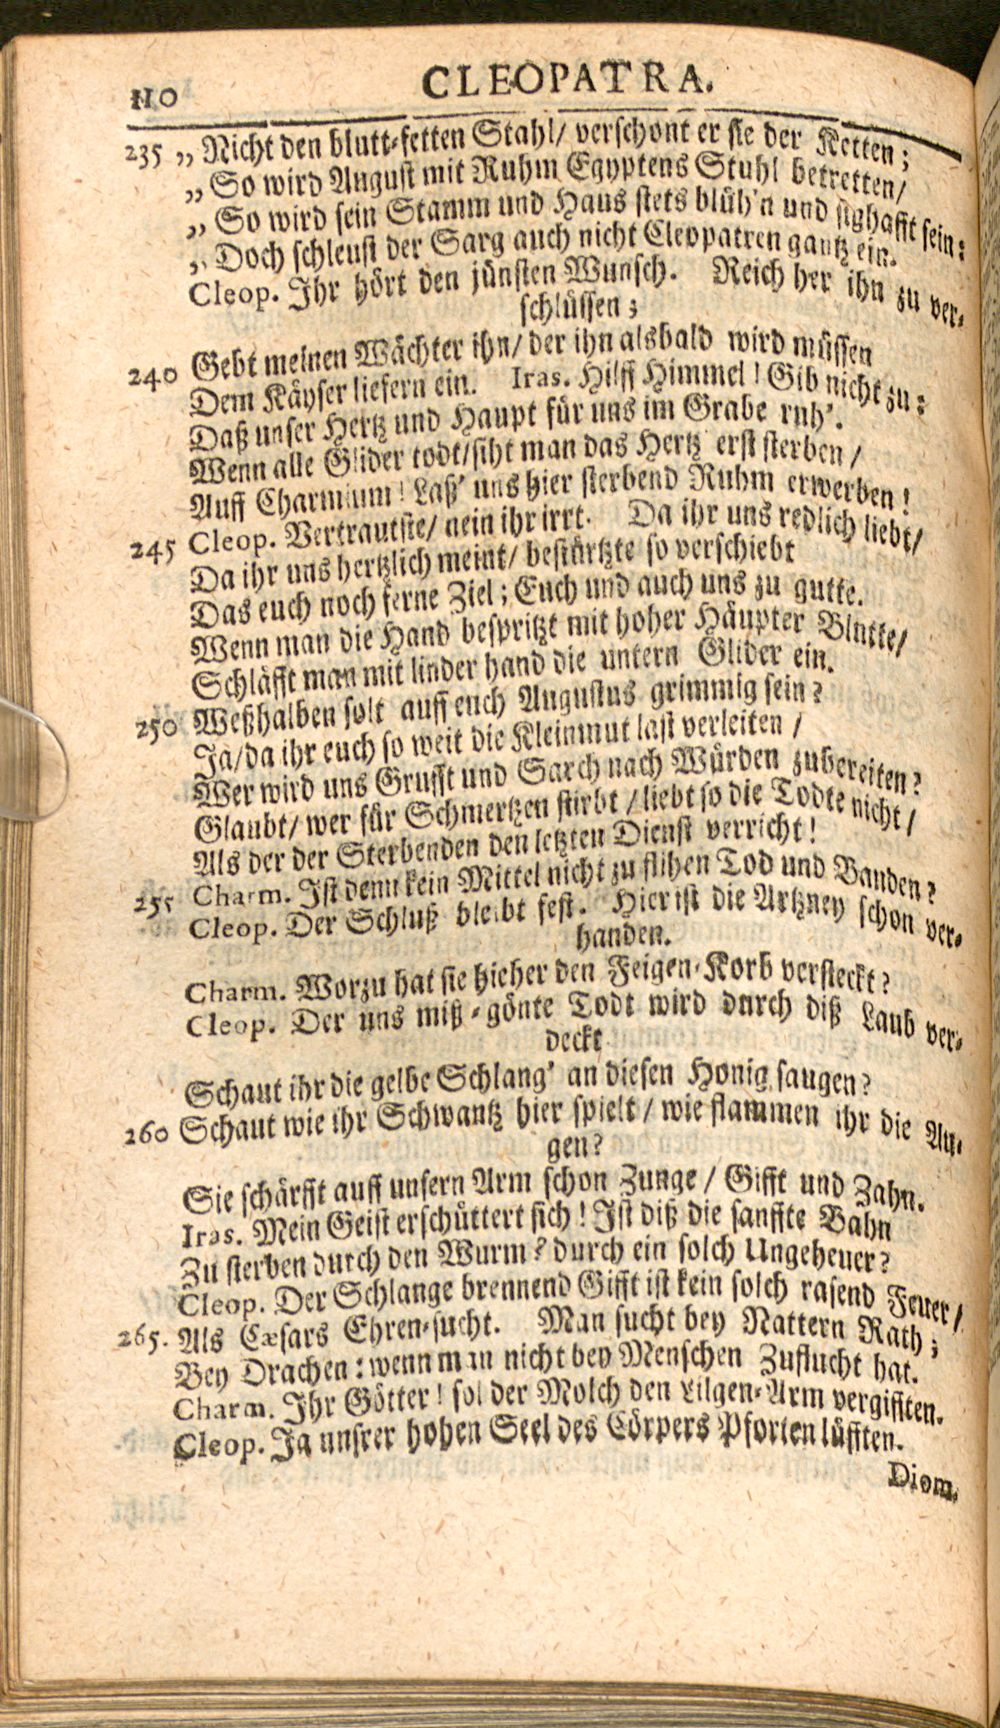 110 CLEOPATRA.
235 „ Nicht den blutt-fetten Stahl/ verschont er sie der Ketten;
„ So wird August mit Ruhm Egyptens Stuhl betretten/
„ So wird sein Stamm und Haus stets blüh'n und sighafft sein:
„ Doch schleust der Sarg auch nicht Cleopatren gantz ein.
Cleop. Ihr hört den jünsten Wunsch. Reich her ihn zu ver-
schlüssen;
240 Gebt meinen Wächter ihn/ der ihn alsbald wird müssen
Dem Käyser liefern ein. Iras. Hilff Himmel! Gib nicht zu:
Daß unser Hertz und Haupt für uns im Grabe ruh'.
Wenn alle Glider todt/siht man das Hertz erst sterben/
Auff Charmium! Laß' uns hier sterbend Ruhm erwerben!
245 Cleop. Vertrautste/ nein ihr irrt. Da ihr uns redlich liebt/
Da ihr uns hertzlich meint/ bestürtzte so verschiebt
Das euch noch ferne Ziel; Euch und auch uns zu gutte.
Wenn man die Hand bespritzt mit hoher Häupter Blutte/
Schläfft man mit linder hand die untern Glider ein.
250 Weßhalben solt auff euch Augustus grimmig sein?
Ja/da ihr euch so weit die Kleinmut last verleiten/
Wer wird uns Grufft und Sarch nach Würden zubereiten?
Glaubt/ wer für Schmertzen stirbt/liebt so die Todte nicht/
Als der der Sterbenden den letzten Dienst verricht!
255 Charm. Ist denn kein Mittel nicht zu flihen Tod und Banden?
Cleop. Der Schluß bleibt fest. Hier ist die Artzney schon ver-
handen.
Charm. Worzu hat sie hieher den Feigen-Korb versteckt?
Cleop. Der uns miß-gönte Todt wird durch diß Laub ver-
deckt
Schaut ihr die gelbe Schlang' an diesen Honig saugen?
260 Schaut wie ihr Schwantz hier spielt/ wie flammen ihr die Au-
gen?
Sie schärfft auff unsern Arm schon Zunge/ Gifft und Zahn.
Iras. Mein Geist erschüttert sich! Ist diß die sanffte Bahn
Zu sterben durch den Wurm? durch ein solch Ungeheuer?
Cleop. Der Schlange brennend Gifft ist kein solch rasend Feuer/
265. Als Cæsars Ehren-sucht. Man sucht bey Nattern Rath;
Bey Drachen: wenn man nicht bey Menschen Zuflucht hat.
Charm. Ihr Götter! sol der Molch den Lilgen-Arm vergifften.
Cleop. Ja unsrer hohen Seel des Cörpers Pforten lüfften.
Diom.